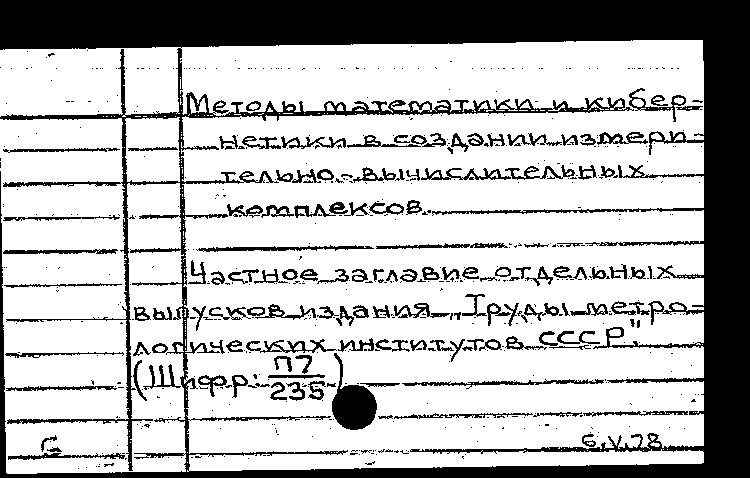 Методы математики и кибер-
нетики в создании измери-
тельно-вычислительных
комплексов.
Частное заглавие отдельных
выпусков издания „Труды метро-
логических институтов СССР"
(Шифр: П7/235)
6.V.78